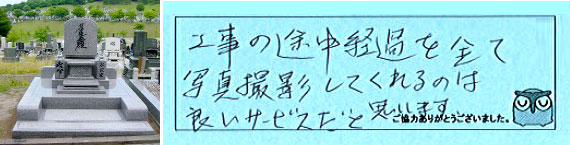 工事の途中経過を全て
写真撮影してくれるのは
良いサービスだと思います。
ご協力ありがとうございました。